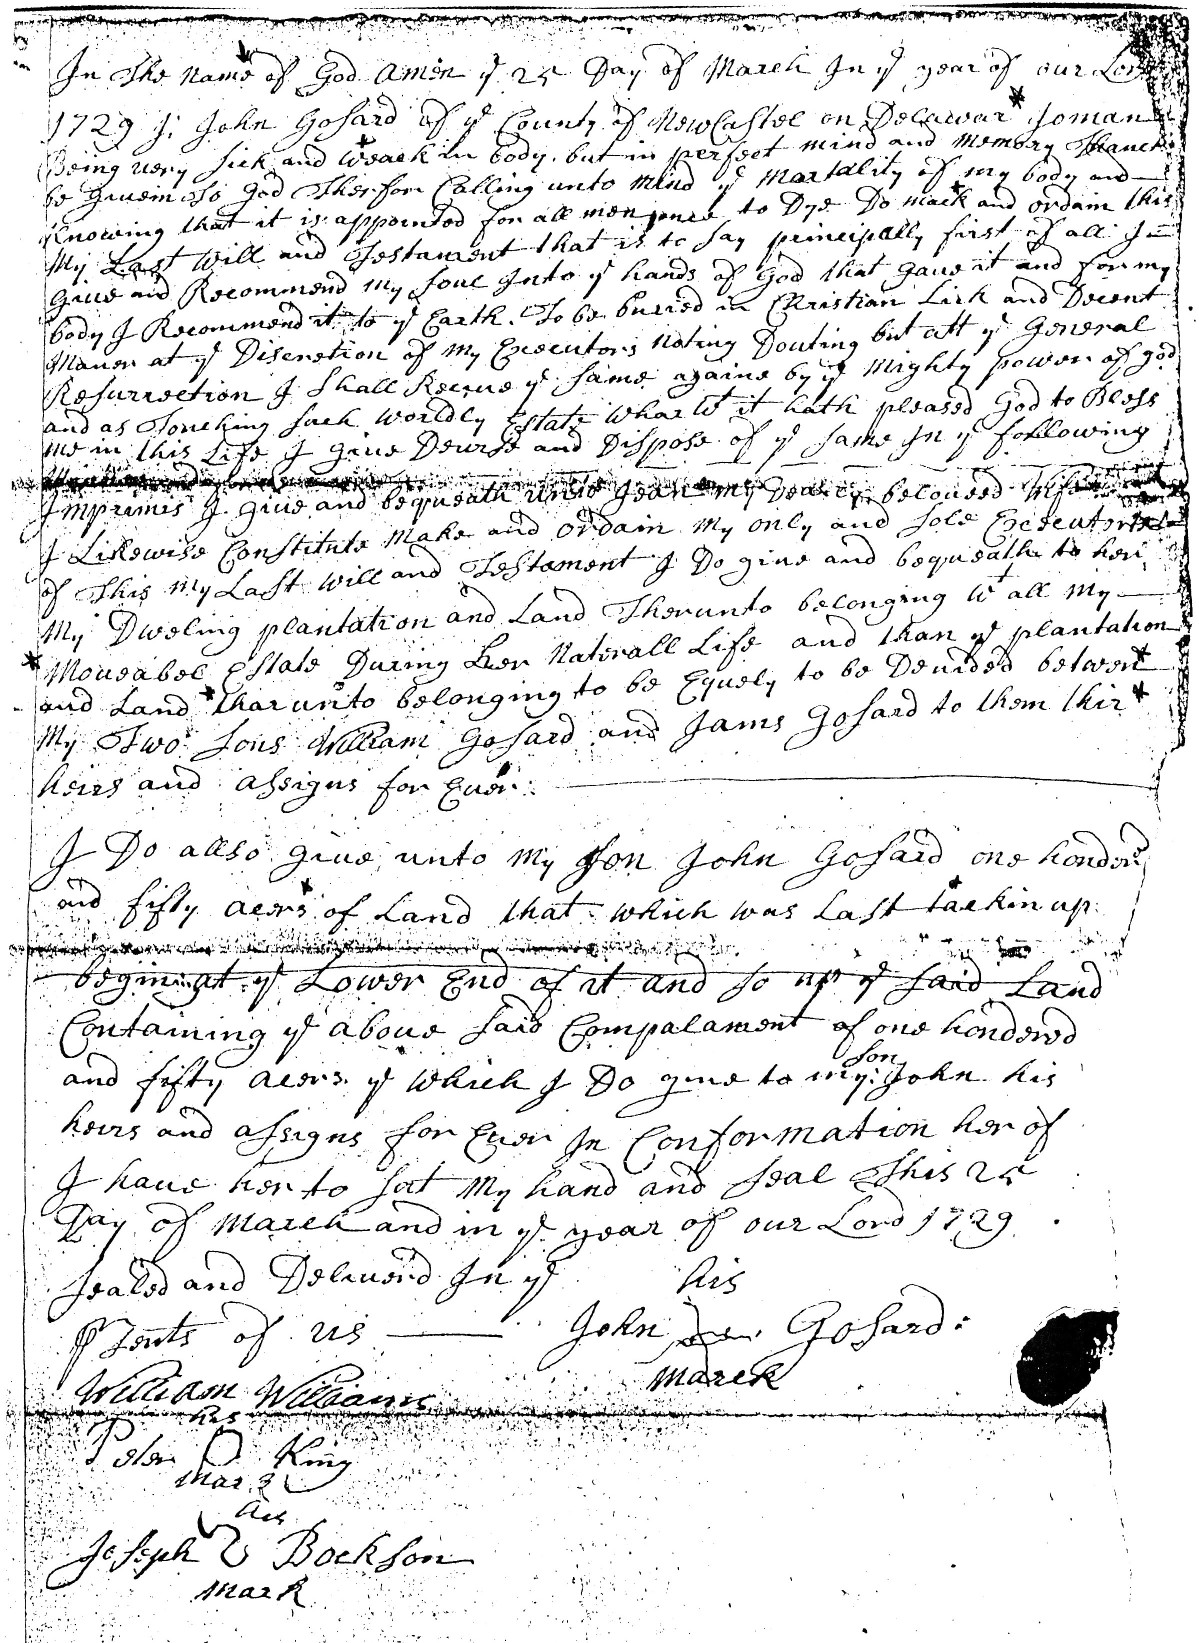 In The name of God Amen ye 25 Day of March In ye year of our Lord
1729 I: John Gosard of ye County of NewCastel on Delawar yoman
Being uery Sick and weack in body but in perfect mind and memory Thanck
be Giuein To God Therfore Calling unto mind ye Mortality of my body and
Knowing that it is appointed for all men once to Dye Do mack and ordain this
My Last Will and Testament that is to say principally first of all I
Giue and Recommend my Soul Into ye hands of God that gaue it and for my
body I Recommend it to ye Earth. To be buried in Christian Lick and Decent
Maner at ye Discretion of my Executors noting Douting but att ye General
Resurrection I Shall Receue ye Same againe by ye Mighty power of god
and as Touching Such worldly Estate wharwt it hath pleased God to Bless
me in this Life I giue Deuise and Dispose of ye same In ye following
Imprimis I giue and bequeath unto Jean my Dearly beloued Wife
I Likewise Constitute Make and ordain my only and Sole Executor
of This my Last will and Testament I Do giue and bequeath to her
My Dweling plantation and Land Therunto belonging wt all My
Moueabel Estate During her Naterall Life and than ye plantation
and Land tharunto belonging to be Equely to be Deuided betwen
My Two Sons William Gosard and Jams Gosard to them thir
heirs and assigns for Euer
I Do allso giue unto my Son John Gosard one honder
and fifty acers of Land that which was Last tackin up
begin at ye Lower End of it and so up ye said Land
Containing ye aboue said Compalament of one hondered
and fifty acers ye which I Do giue to my son John his
heirs and assigns for Euer In Conformation her of
I haue her to Set My hand and Seal This 25
Day of March and in ye year of our Lord 1729
Sealed and Deliuerd In ye his
John Gosard:
of us
marck
William Williams
his
Peter King
mark
his
Joseph Bockson
mark